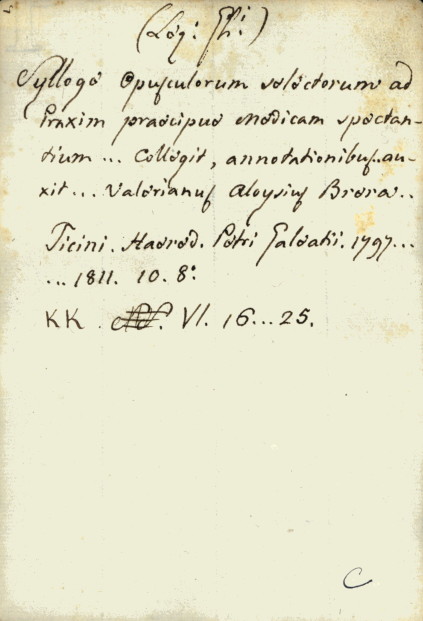 (Leg: Ph:)
Sylloge Opusculorum selectorum ad
Praxim praecipue Medicam spectan-
tium ... Collegit, annotationibus au-
xit ... Valerianus Aloysius Brera..
Ticini. Haered. Petri Galeatii. 1797...
...1811. 10. 8º
KK . VI. 16...25.
C